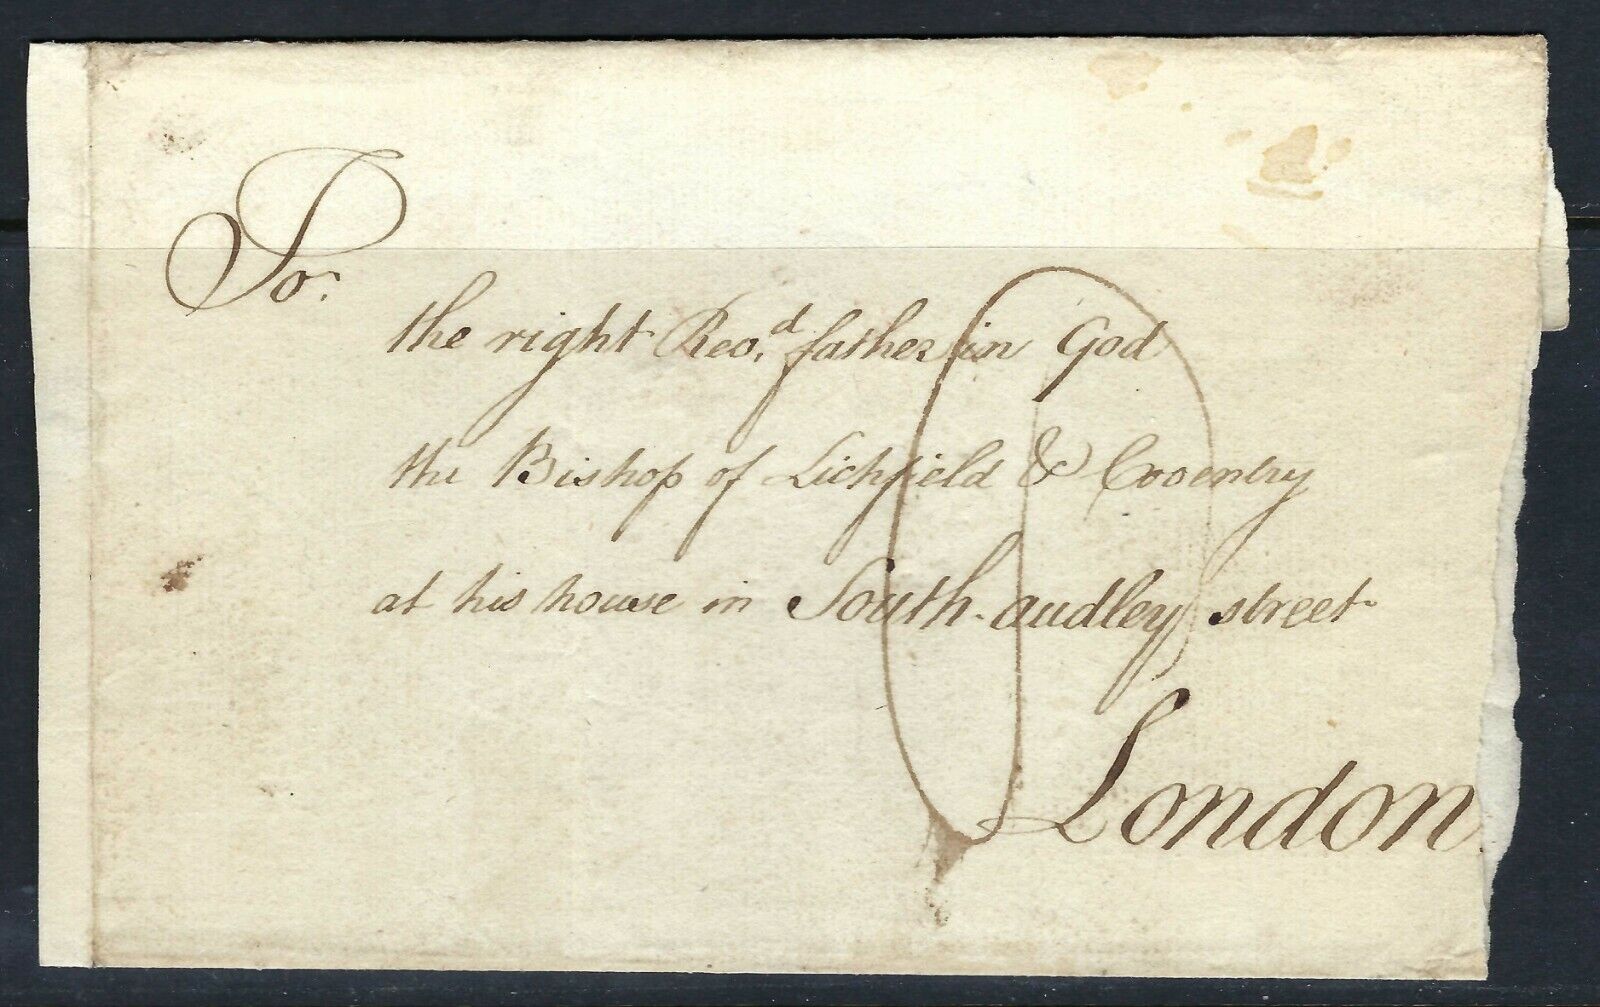 To.
the right Rev.d father in God
the Bishop of Lichfield & Coventry
at his house in South-audley street
London.